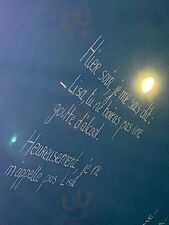 Hier soir, je me suis dit :
_ Lisa, tu ne boiras pas une
goutte d'alcool.
Heureusement je ne
m'appelle pas Lisa